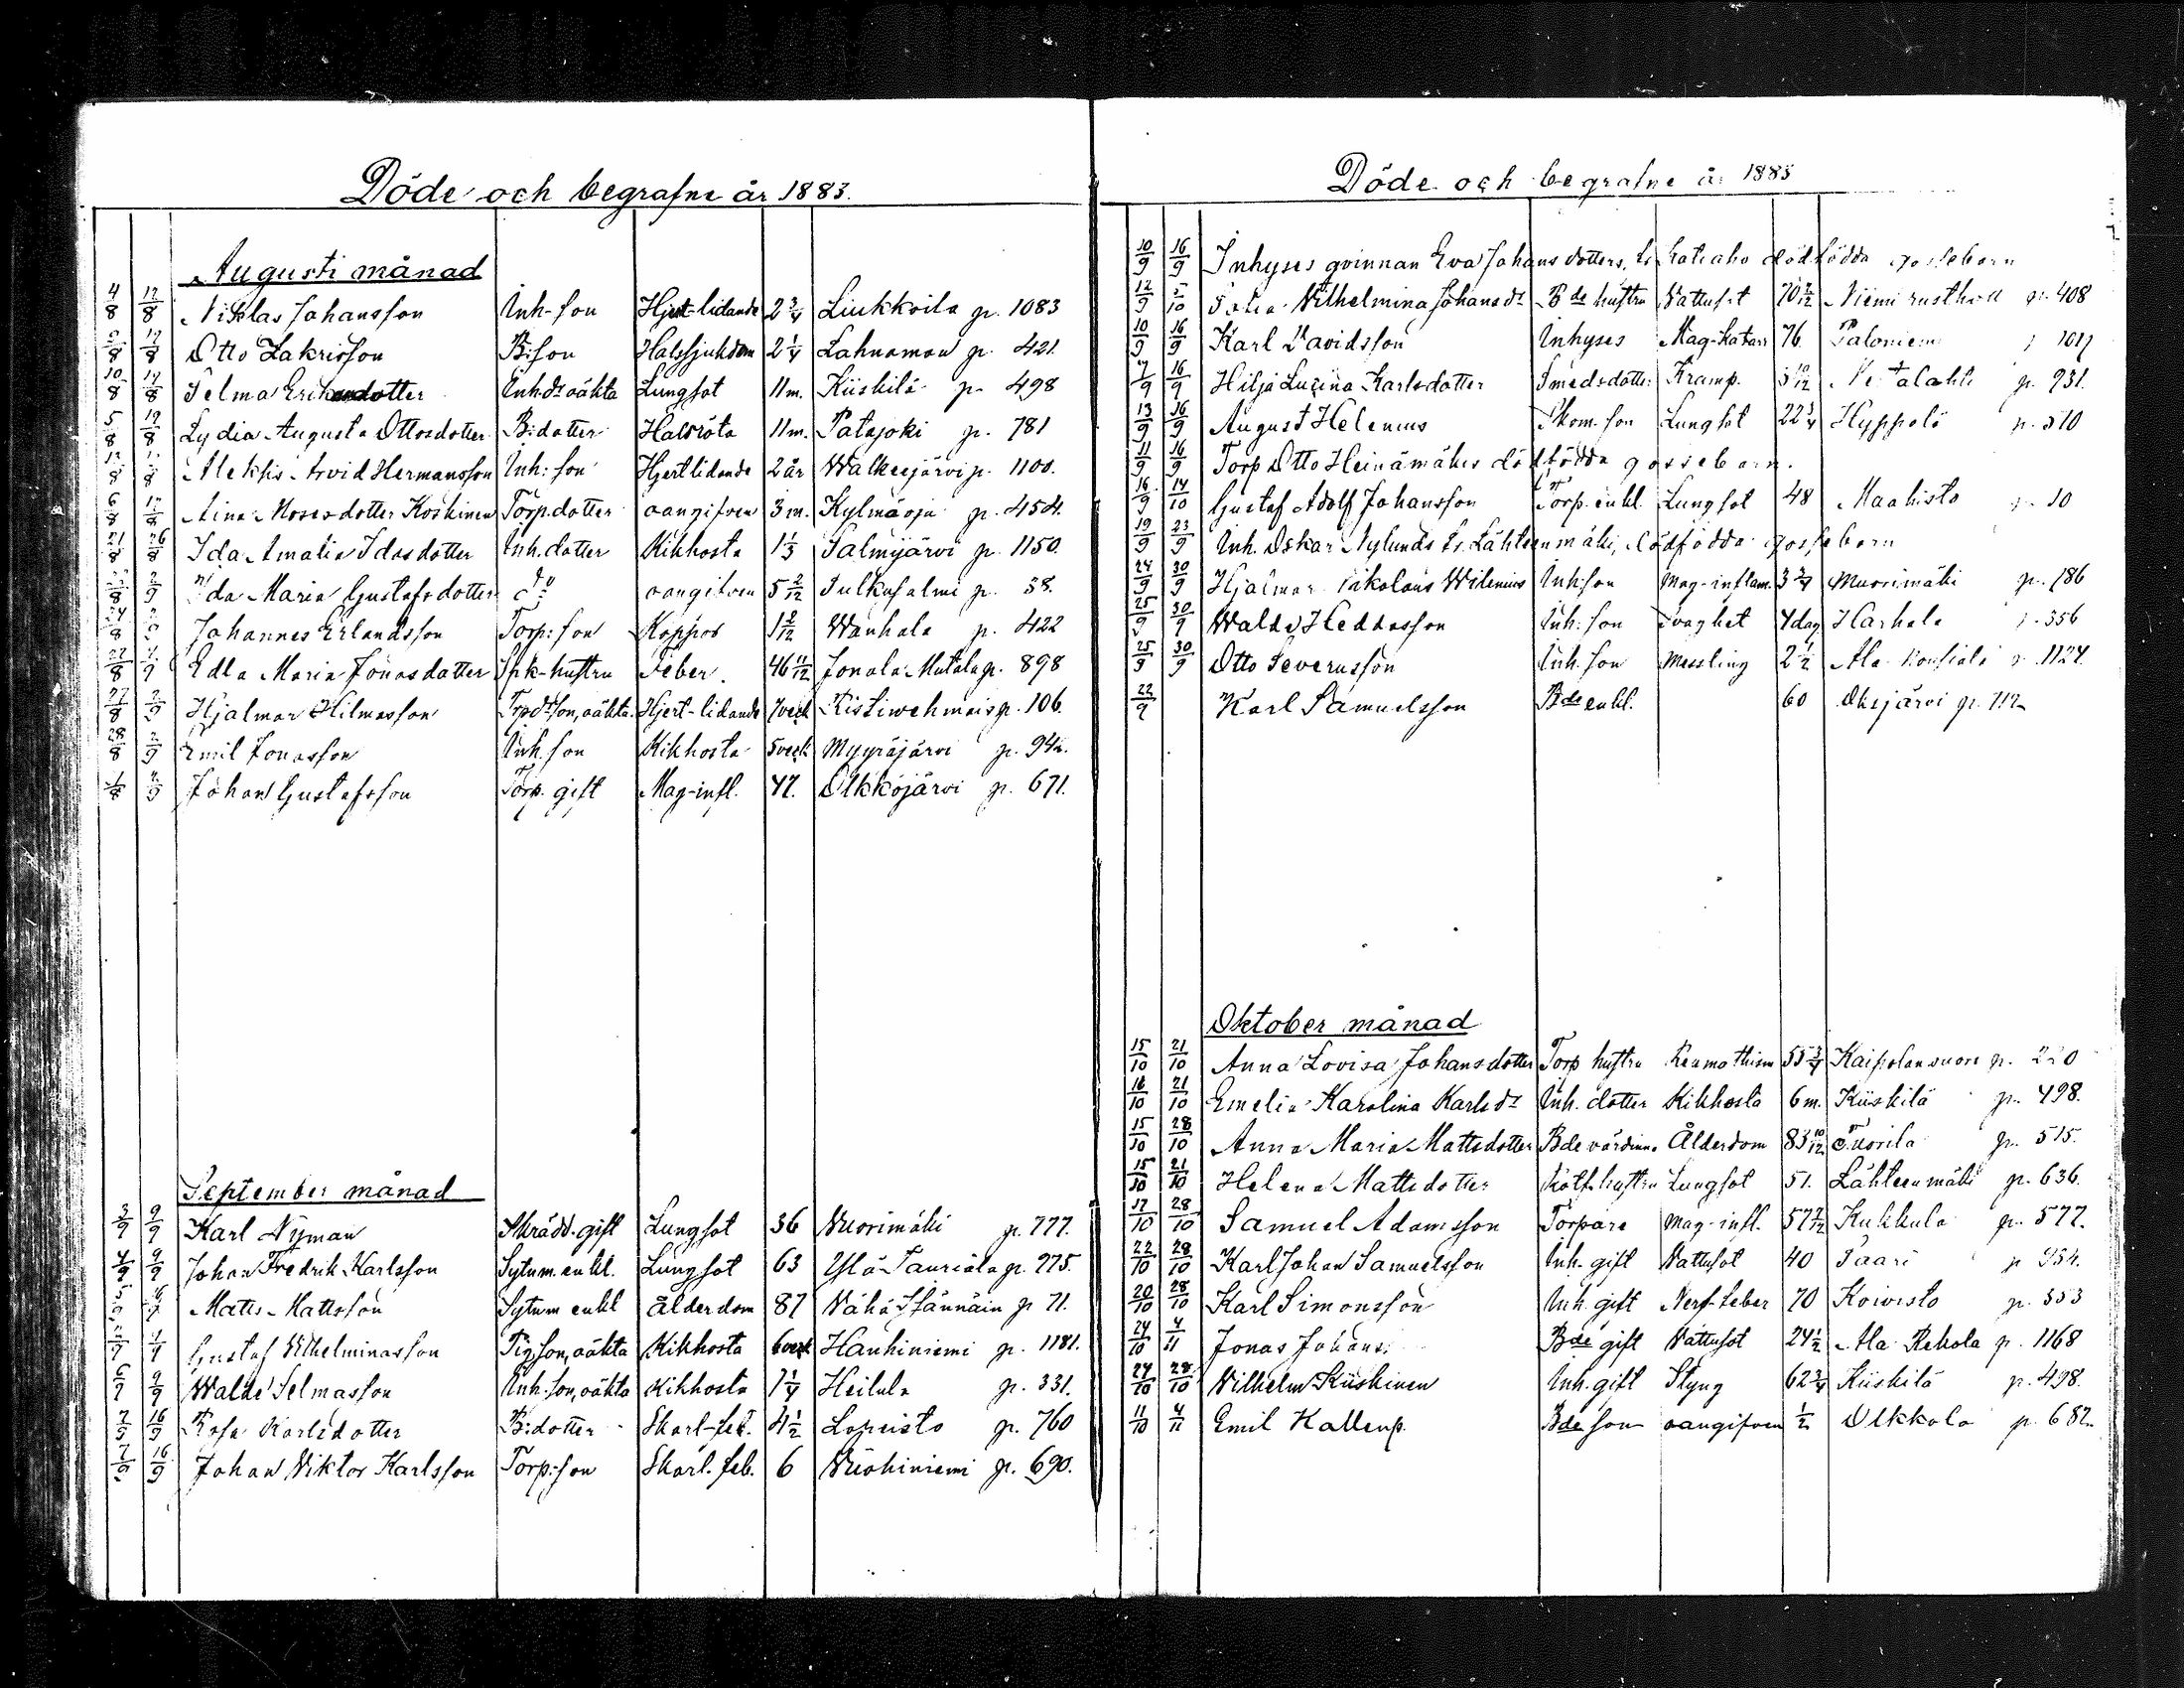 Döde och begrafne år 1883.
Augusti månad
4/8 12/8 Niklas Johansson Inh-son Hjert-lidande 2 3/4 Liukkoila p. 1083
8 19/8 Otto Zakrisson B:son Halssjukdom 2 1/4 Lahnaman p. 421.
10/8 19/8 Selma Eriksdotter Inh.dr oäkta Lungsot 11 m. Kiiskilä p. 498
5/8 19/8 Lydia Augusta Ottosdotter B:dotter Halsröta 11 m. Patajoki p. 781
12/8 8 Aleksis Arvid Hermansson Inh: son Hjertlidande 2 år Walkeejärvi p. 1100.
6/8 12/8 Aina Mosesdotter Koskinen Torp.dotter oangifven 3 m. Kylmäoja p. 454.
21/8 26/8 Ida Amalia Idasdotter Inh. dotter Kikhosta 1 1/3 Salmijärvi p. 1150.
8 2/9 Ida Maria Gustafsdotter do oangifven 5 2/12 Sulkusalmi p. 38.
24/8 2/9 Johannes Erlandsson Torp: son Koppor 1 2/12 Wanhala p. 422
27/8 9 Edla Maria Jonasdotter Spk-hustru Feber. 46 11/12 Jonala Mutala p. 898
27/8 2/9 Hjalmar Hilmasson Trpdrson, oäkta. Hjert-lidande 7 veck Ristiwehmais p. 106.
28/8 2/9 Emil Jonasson Inh. son Kikhosta 5 veck Myyräjärvi p. 942.
8 2/9 Johan Gustafsson Torp. gift Mag-infl. 47. Olkkojärvi p. 671.
September månad
3/9 9/9 Karl Nyman Skrädd. gift Lungsot 36 Vuorimäki p. 777.
4/9 9/9 Johan Fredrik Karlsson Sytnm. enkl. Lungsot 63 Ylä Tauriala p. 275.
5/9 16/9 Matts Mattsson Sytnm enkl Ålderdom 87 Vähä Hännäin p 71.
9 9 Gustaf Vilhelminasson Pigson, oäkta Kikhosta 6 veck Hauhiniemi p. 1181.
6/9 9/9 Walde Selmasson Inh. son, oäkta Kikhosta 1 1/4 Heilula p. 331.
7/9 16/9 Rosa Karlsdotter B:dotter Skarl-feb. 4 1/2 Lopeisto p. 760
7/9 16/9 Johan Viktor Karlsson Torp:son Skarl. feb. 6 Vuohiniemi p. 690.
Döde och begrafne år 1883
10/9 16/9 Inhyses qvinnan Eva Johansdotters, fr. dödfödda gossebarn
12/9 5/10 Vilhelmina Johansdr Bde hustru Vattusot 70 2/12 Niemi rusthåll p. 408
10/9 16/9 Karl Davidsson Inhyses Mag-katarr 76. Paloniemi
9/9 16/9 Hilja Lucina Karlsdotter Smedsdotter Kramp. 3 10/12 p. 931.
13/9 16/9 August Helenius Skom. son Lungsot 22 3/4 Hyppölä p. 510
11/9 16/9 Torp Otto Heinämäkis dödfödda gossebarn.
16/9 14/10 Gustaf Adolf Johansson Torp. enkl. Lungsot 48 Maahisto 10
19/9 23/9 Inh. Oskar Nylunds fr. Lähteenmäki, dödfödda gossebarn
24/9 30/9 Hjalmar Nikolaus Wilenius Inhson Mag-inflam. 3 3/4 Muorimäki p. 186
25/9 30/9 Walde Heddasson Inh: son Svaghet 4 dag Harhala 356
25/9 30/9 Otto Severusson Inh. son Messling 2 1/2 Ala 1124.
22/9 Karl Samuelsson Bde enkl. 60 Oksjärvi p. 712
Oktober månad
15/10 21/10 Anna Lovisa Johansdotter Torp hustru Reumathism 55 3/4 Kaipolanvuori p.
16/10 21/10 Emelia Karolina Karlsdr Inh. dotter Kikhosta 6 m. Kiiskilä p. 498.
15/10 28/10 Anna Maria Mattsdotter Bde värdinna Ålderdom 83 10/12 Tuorila p. 515.
15/10 21/10 Helena Mattsdotter hustru Lungsot 51. Lähteenmäki p. 636.
17/10 28/10 Samuel Adamsson Torpare Mag-infl. 57 Kukkula p. 577.
22/10 28/10 Karl Johan Samuelsson Inh. gift Vattusot 40 Saari p 954.
20/10 28/10 Karl Simonsson Inh. gift Nerf-feber 70 Koivisto p. 353
24/10 4/11 Jonas Johans Bde gift Vattusot 24 1/2 Ala Rekola p. 1168
24/10 28/10 Vilhelm Kiiskinen Inh. gift Styng 62 3/4 Kiiskilä p. 498.
11/10 4/11 Emil Kallenp. Bde son oangifven 1/2 Olkkola p. 682.